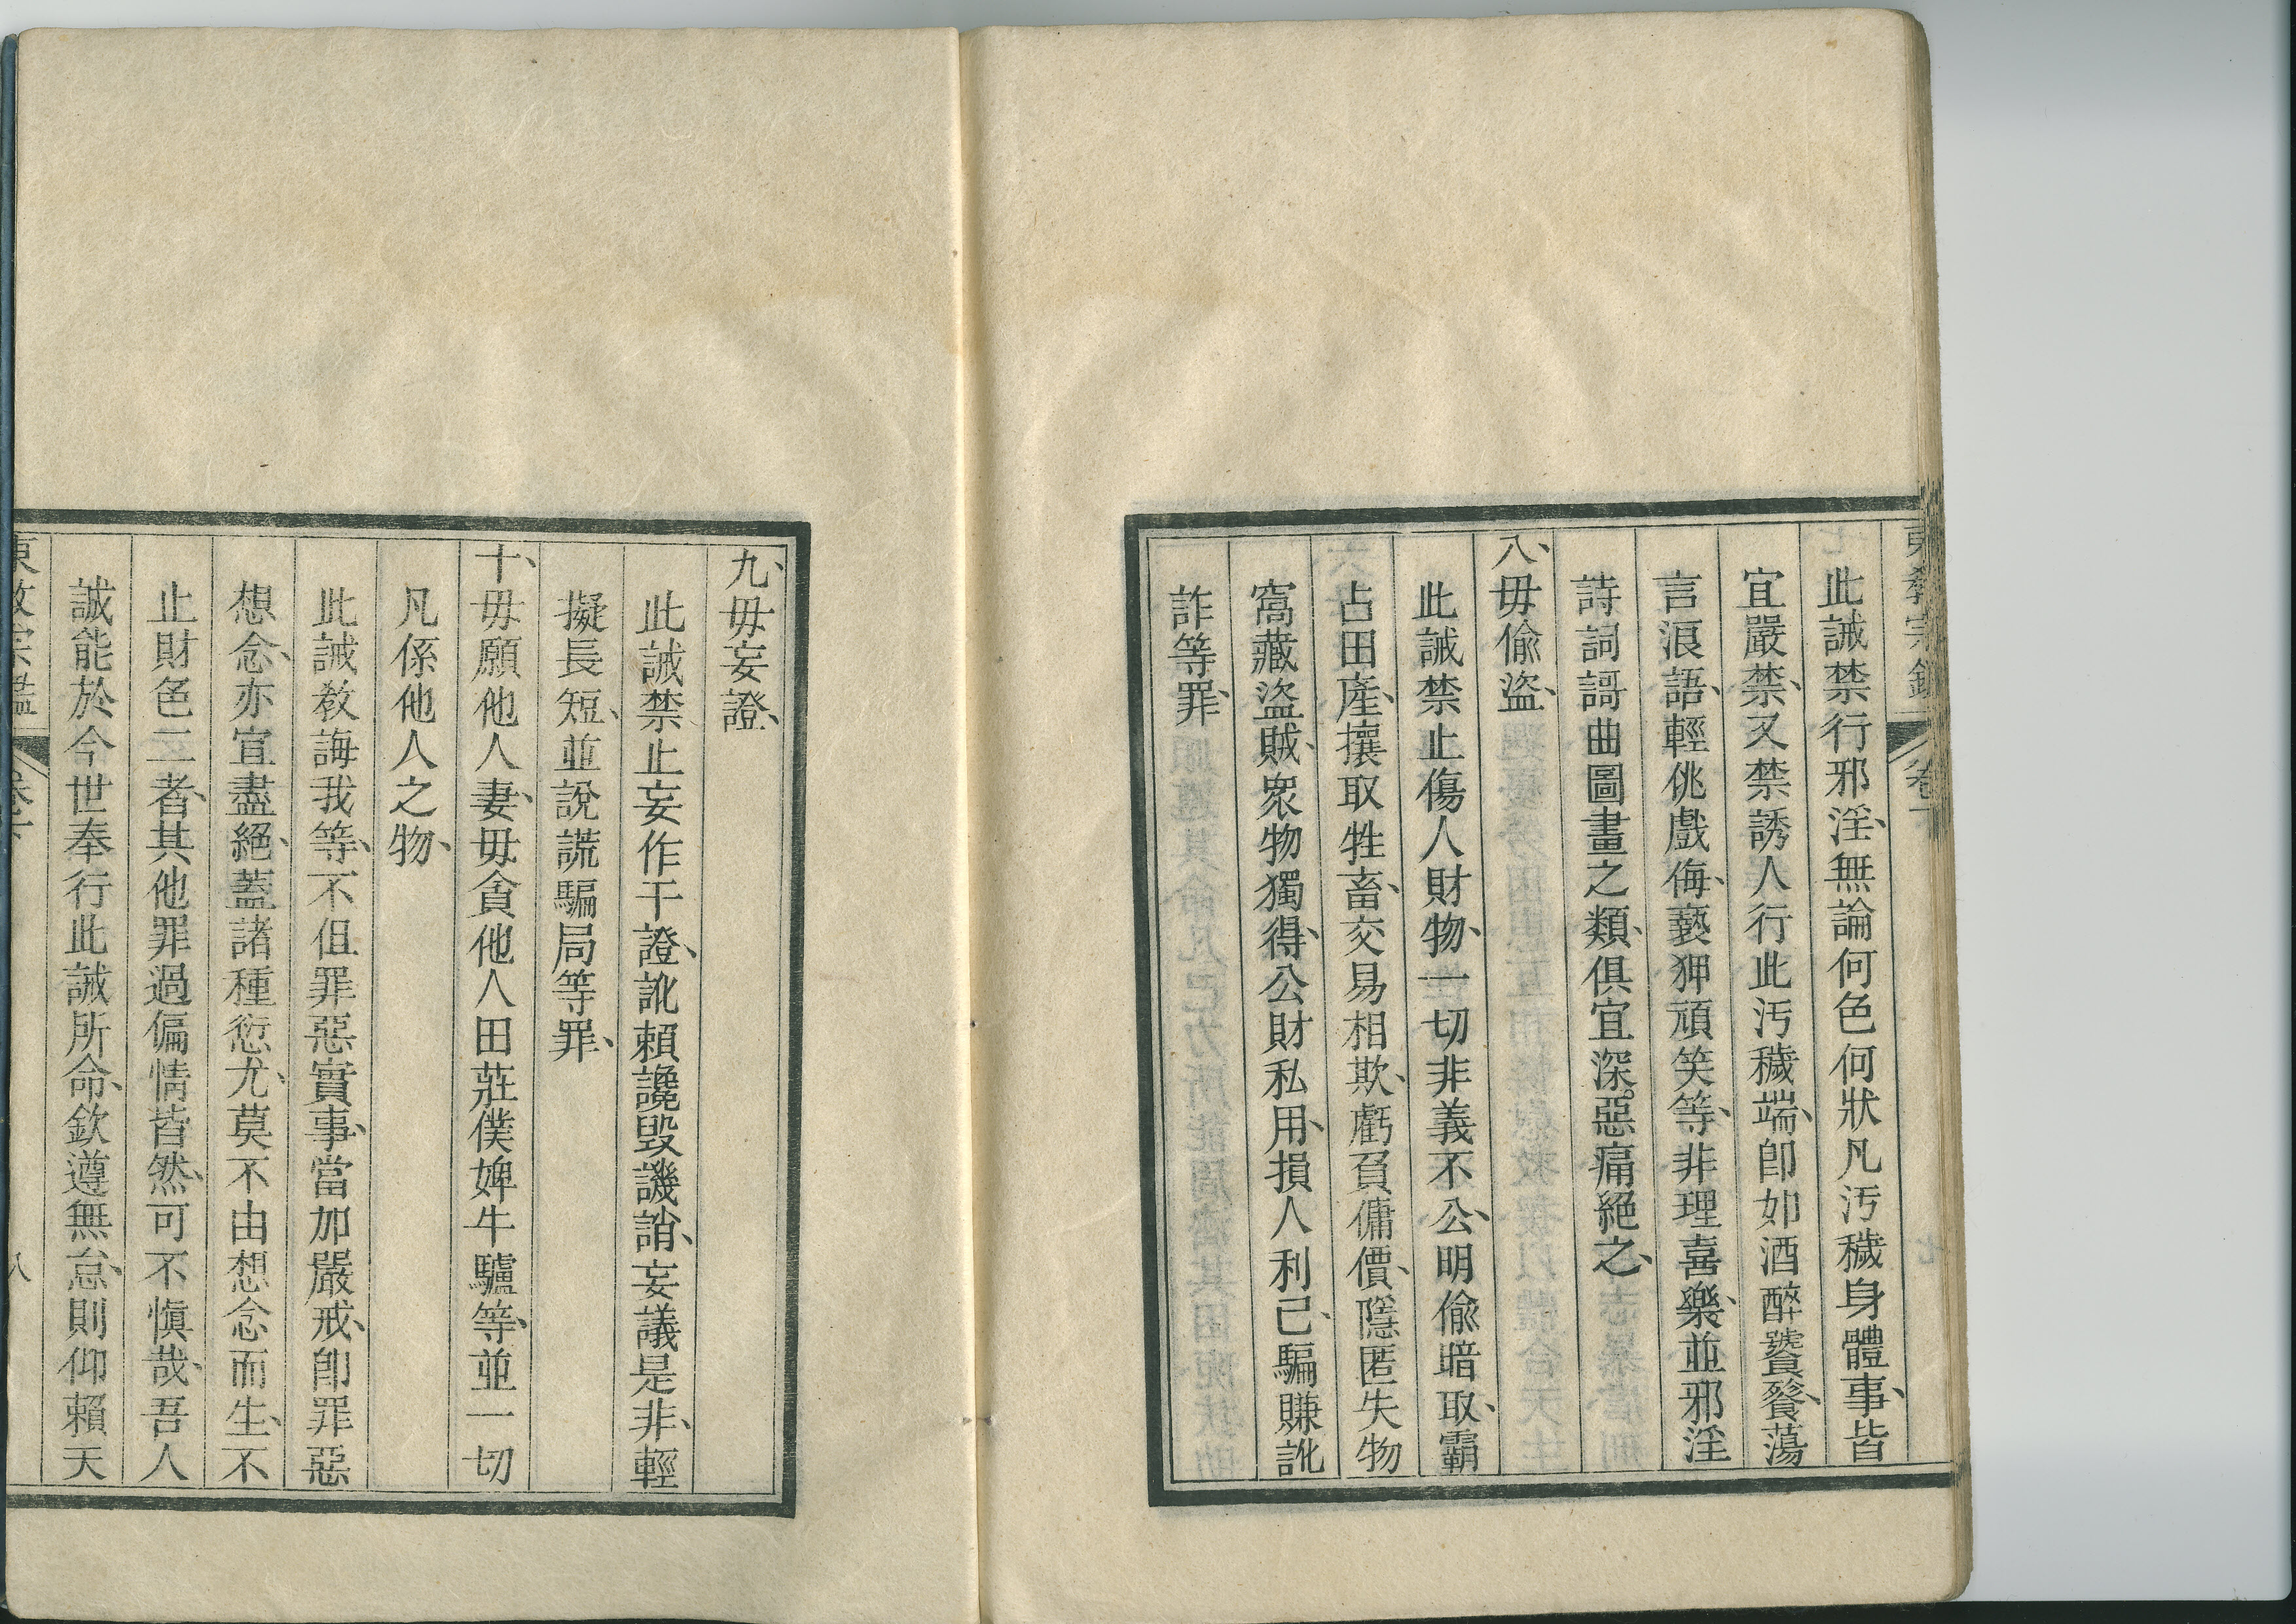 東教宗鑑 卷下
此誡禁行邪淫、無論何色何狀凡汚穢身體事、皆
宜嚴禁、又禁誘人行此汚穢端、卽如酒醉饕餮、蕩
言浪語、輕佻戲侮、褻狎頑笑等、非理喜樂、並邪淫
詩詞謌曲圖畫之類、俱宜深惡痛絕之、
八、毋偸盜、
此誡禁止傷人財物、一切非義不公、明偸暗取、霸
占田產、攘取牲畜、交易相欺、虧負傭價、隱匿失物
窩藏盜賊、衆物獨得、公財私用、損人利己、騙賺訛
詐等罪、
九、毋妄證、
此誡禁止妄作干證、訛賴讒毀譏誚、妄議是非、輕
擬長短、並說謊騙局等罪、
十、毋願他人妻、毋貪他人田莊僕婢牛驢等、並一切
凡係他人之物、
此誡敎誨我等、不但罪惡實事、當加嚴戒、卽罪惡
想念、亦宜盡絕、蓋諸種愆尤、莫不由想念而生、不
止財色二者、其他罪過偏情皆然、可不愼哉、吾人
誠能於今世奉行此誡所命、欽遵無怠、則仰賴天
東教宗鑑 卷下 八